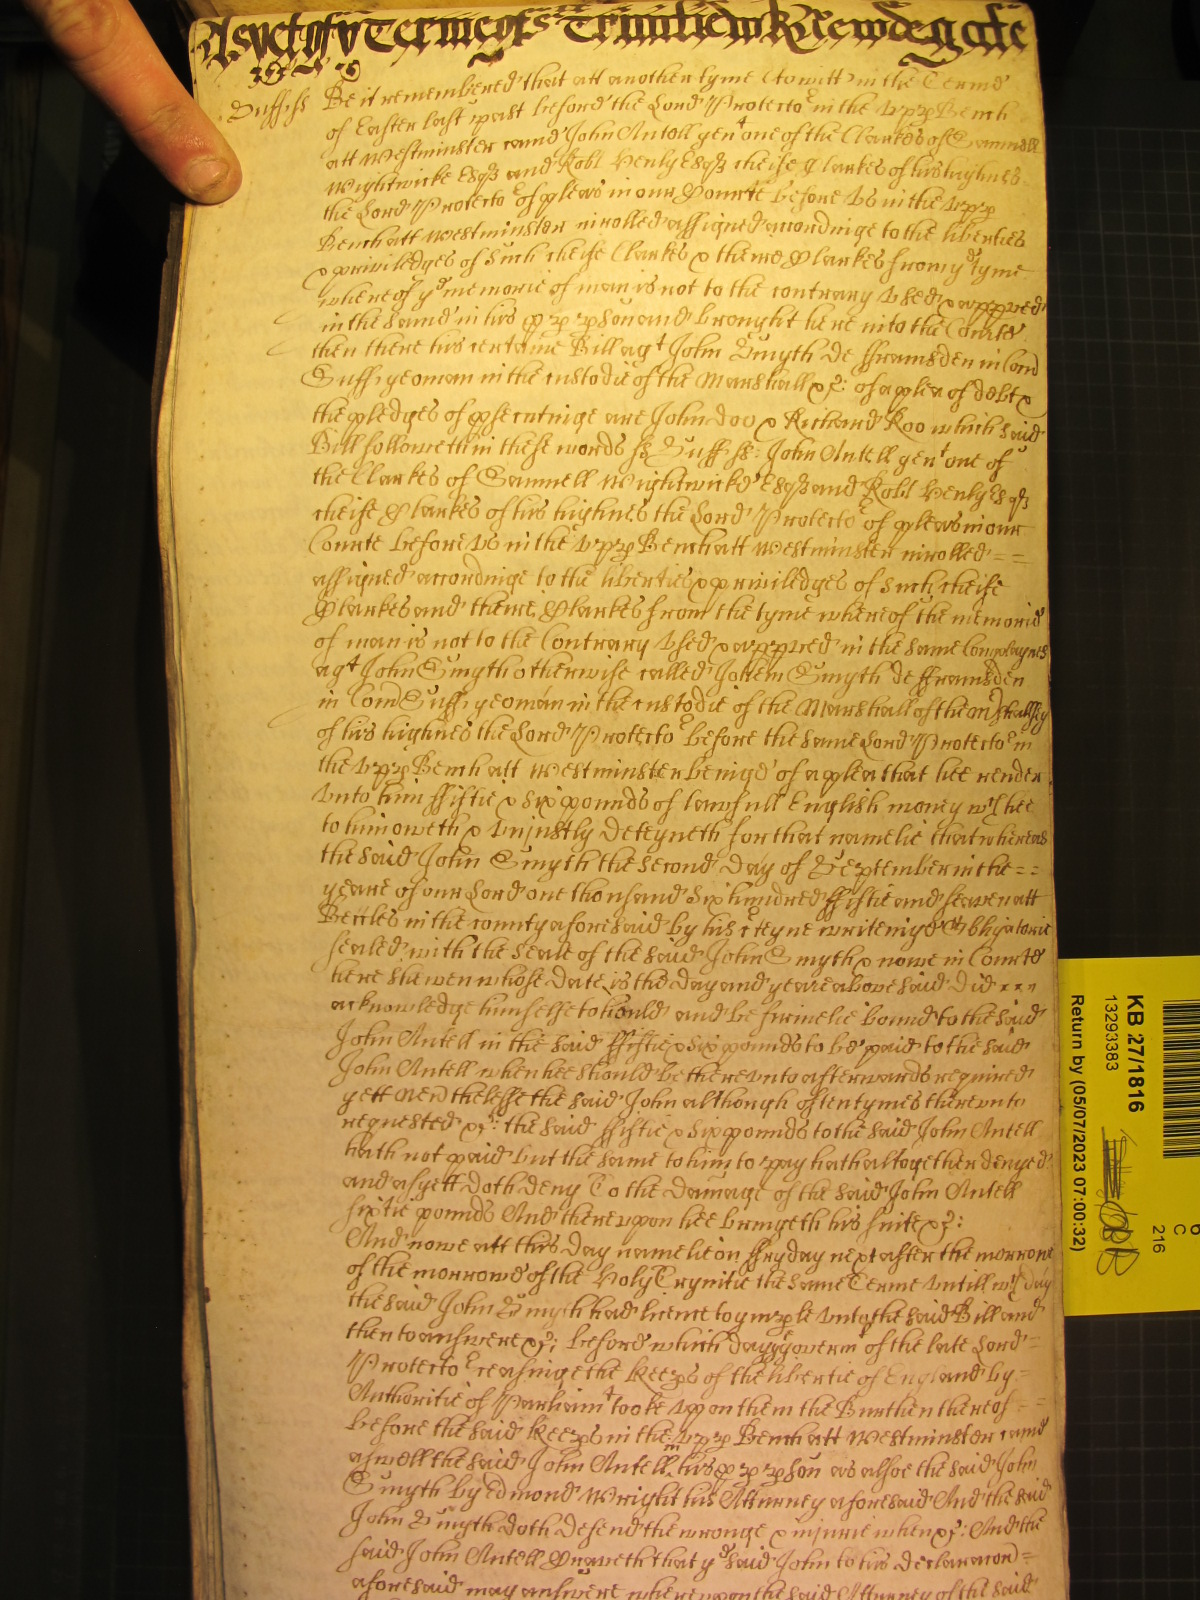 As yet of ye Terme of ye Trinitie w Newdegate
Suff ss Be it remembered that att another tyme (to witt) in the Terme
of Easter last past before the Lord Protector in the vpp Bench
att Westminster came John Antell gent one of the Clarkes of Samuell
Wightwicke Esqr and Robt Henly Esqr cheife Clarkes of his highnes
the Lord Protector of pleas in our Courte before vs in the vpp
Bench att Westminster inrolled assigned accordinge to the liberties
& priviledges of such cheife Clarkes & theire Clarkes from ye tyme
whereof ye memorie of man is not to the contrary vsed & appved
in the same in his pp pson and brought here into the Courte
then there his certaine Bill agt John Smyth de fframsden in Com
Suff yeoman in the custodie of the Marshall &c: of a plea of debt &
the pledges of psecutinge are John doo & Richard Roo which said
Bill followeth in these words ss Suff ss: John Antell gent one of
the Clarkes of Samuell Wightwicke Esqr and Robt Henly Esqr
cheife Clarkes of his highnes the Lord Protector of pleas in our
Courte before vs in the vpp Bench att Westminster inrolled = =
assigned accordinge to the liberties & priviledges of such cheife
Clarkes and theire Clarkes from the tyme whereof the memorie
of man is not to the Contrary vsed & appved in the same Complaynes
agt John Smyth otherwise called John Smyth de fframsden
in Com Suff yeoman in the custodie of the Marshall of the Mshallsey
of his highnes the Lord Protector before the same Lord Protector in
the vpp Bench att Westminster beinge of a plea that hee render
vnto him ffiftie & six pounds of lawfull English money wch hee
to him oweth & vnjustly deteyneth for that namelie that whereas
the said John Smyth the second day of September in the = =
yeare of our Lord one thousand six hundred ffiftie and seaven att
Beccles in the county aforesaid by his cteyne writeinge Obligatorie
sealed with the seale of the said John Smyth & nowe in Courte
here shewen whose date is the day and yeare above said did
acknowledge himselfe to hould and be firmelie bound to the said
John Antell in the said ffiftie & six pounds to be paid to the said
John Antell when hee should be therevnto afterwards required
yett nevtheless the said John although often tymes therevnto
requested &c: the said ffiftie & six pounds to the said John Antell
hath not paid but the same to him to pay hath altogether denyed
and as yett doth deny To the damage of the said John Antell
sixtie pounds And therevpon hee bringeth his suite &c:
And nowe att this day namelie on ffryday next after the morrowe
of the morrowe of the Holy Trynitie the same Terme vntill wch day
the said John Smyth had licence to imple vnto the said Bill and
then to answere &c: before which day ye goverm of the late Lord =
Protector ceasinge the Keeps of the libertie of England by =
Authoritie of Parliamt tooke vpon them the Burthen thereof = =
before the said Keeps in the vpp Bench att Westminster came
aswell the said John Antell in his pp pson as alsoe the said John
Smyth by Edmond Wright his Atturney aforesaid And the said
John Smyth doth defend the wronge & injurie when &c: And the
said John Antell prayeth that ye said John to his declaracon =
aforesaid may answere wherevpon the said Atturney of the said
KB 27/1816
13293383
Return by (05/07/2023 07:00:32)
C
216